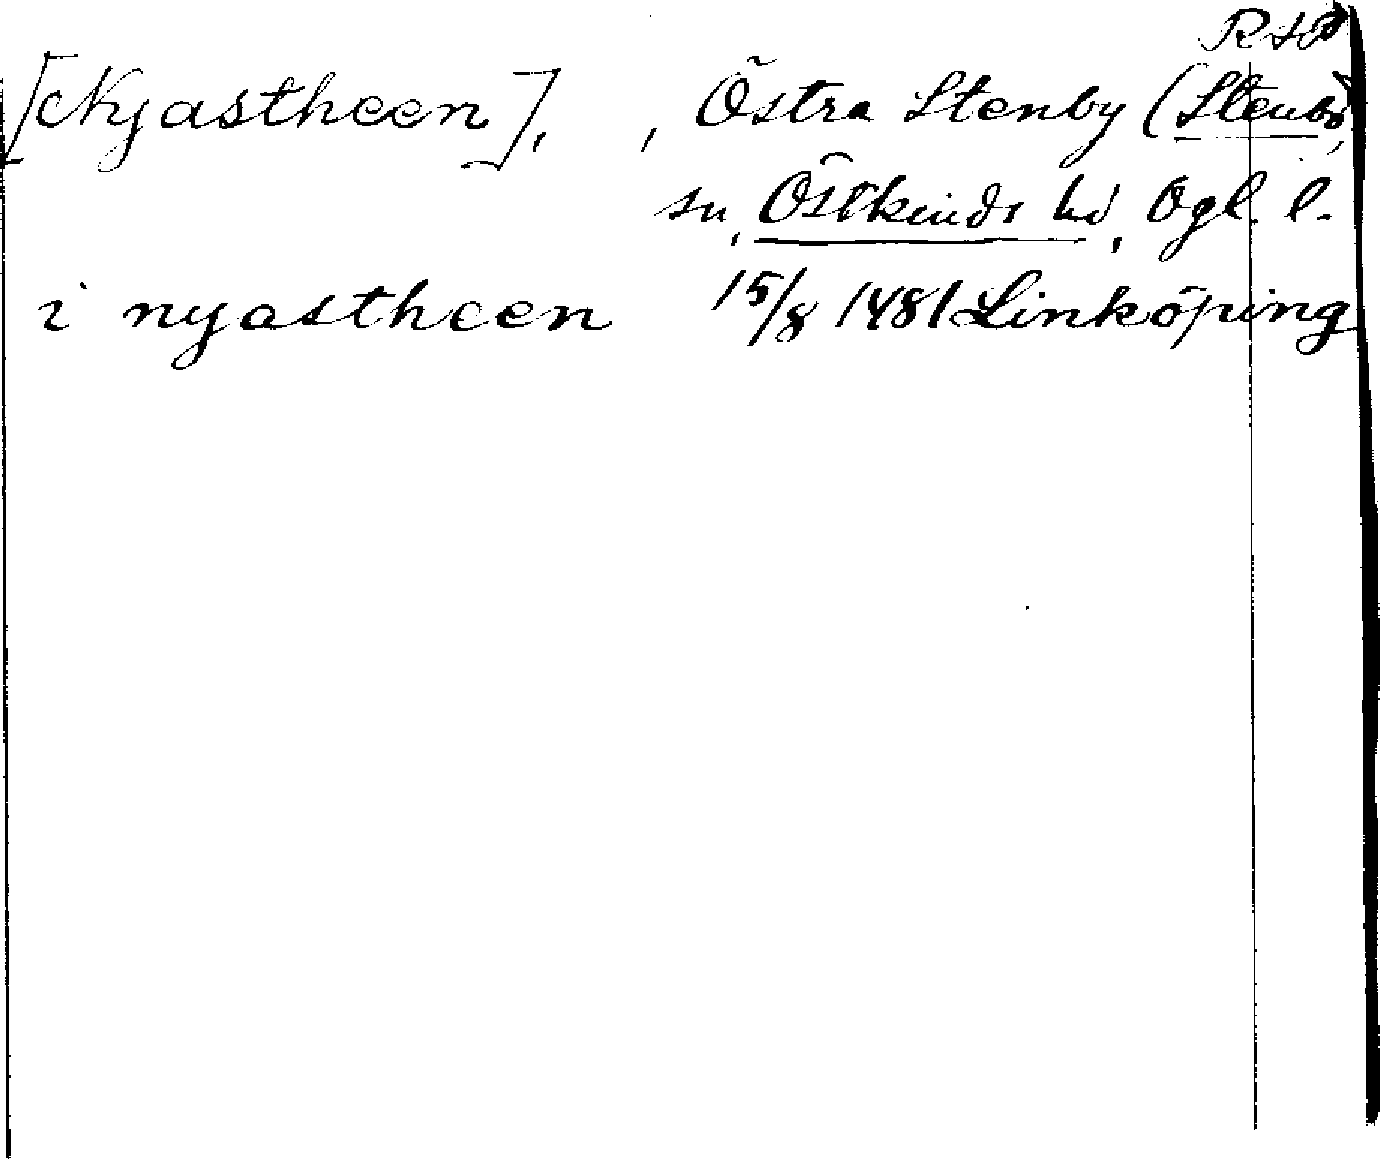 RAP
[Nyastheen], , Östra Stenby (Stenby
sn, Östkinds hd, Ögl. l.
i nyastheen 15/8 1481 Linköping